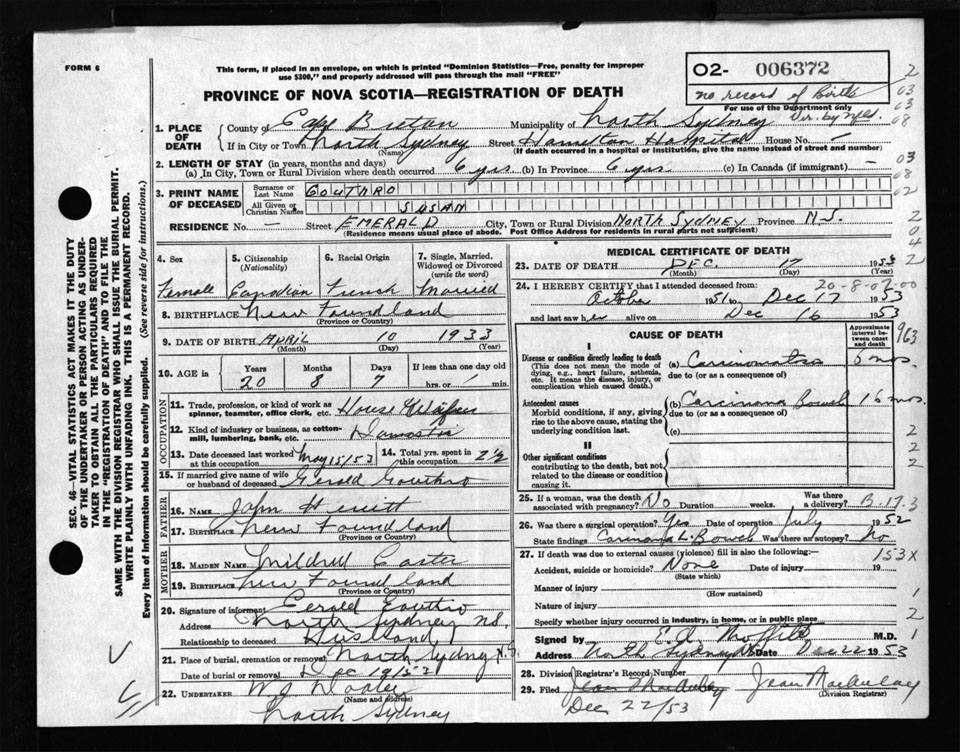 FORM 6
This form, if placed in an envelope, on which is printed "Dominion Statistics—Free, penalty for improper
use $300," and properly addressed will pass through the mail "FREE"
O2- 006372
no record of Birth
For use of the Department only
Dir. by Nfld.
PROVINCE OF NOVA SCOTIA—REGISTRATION OF DEATH
1. PLACE OF DEATH
County of Cape Breton Municipality of North Sydney
If in City or Town North Sydney Street Hamilton Hospital House No.
(Name) (If death occurred in a hospital or institution, give the name instead of street and number)
2. LENGTH OF STAY (in years, months and days)
(a) In City, Town or Rural Division where death occurred 6 yrs (b) In Province 6 yrs (c) In Canada (if immigrant) —
3. PRINT NAME OF DECEASED
Surname or Last Name GOUTHRO
All Given or Christian Names SUSAN
RESIDENCE No. — Street EMERALD City, Town or Rural Division NORTH SYDNEY Province N.S.
(Residence means usual place of abode. Post Office Address for residents in rural parts not sufficient)
4. Sex
Female
5. Citizenship (Nationality)
Canadian
6. Racial Origin
French
7. Single, Married, Widowed or Divorced (write the word)
Married
8. BIRTHPLACE New Foundland
(Province or Country)
9. DATE OF BIRTH APRIL 10 1933
(Month) (Day) (Year)
10. AGE in Years Months Days If less than one day old
20 8 7 hrs. or min.
OCCUPATION
11. Trade, profession, or kind of work as
spinner, teamster, office clerk, etc. House Wife
12. Kind of industry or business, as cotton-
mill, lumbering, bank, etc. Domestic
13. Date deceased last worked at this occupation May 15/53
14. Total yrs. spent in this occupation 2½
15. If married give name of wife
or husband of deceased Gerald Gouthro
FATHER
16. Name John
17. Birthplace New Foundland
(Province or Country)
MOTHER
18. Maiden Name Mildred
19. Birthplace New Foundland
(Province or Country)
20. Signature of informant Gerald Gouthro
Address North Sydney N.S.
Relationship to deceased Husband
21. Place of burial, cremation or removal North Sydney N.S.
Date of burial or removal Dec 19/53
22. UNDERTAKER W.J. Dooley
(Name and address)
North Sydney
MEDICAL CERTIFICATE OF DEATH
23. DATE OF DEATH DEC. 17 1953
(Month) (Day) (Year)
20-8-07-00
24. I HEREBY CERTIFY that I attended deceased from:
October 1951 to Dec 17 1953
and last saw her alive on Dec 16 1953
CAUSE OF DEATH
Approximate interval between onset and death
I
Disease or condition directly leading to death
(This does not mean the mode of
dying, e.g., heart failure, asthenia,
etc. It means the disease, injury, or
complication which caused death.)
(a) Carcinomatosis 6 mos
due to (or as a consequence of)
Antecedent causes
Morbid conditions, if any, giving
rise to the above cause, stating the
underlying condition last.
(b) Carcinoma Bowel 16 mos.
due to (or as a consequence of)
(c)
II
Other significant conditions
contributing to the death, but not
related to the disease or condition
causing it.
25. If a woman, was the death associated with pregnancy? No Duration weeks. Was there a delivery? B.17.3
26. Was there a surgical operation? Yes Date of operation July 1952
State findings Carcinoma L. Bowel Was there an autopsy? No
27. If death was due to external causes (violence) fill in also the following:—
153X
Accident, suicide or homicide? None Date of injury 19
(State which)
Manner of injury
(How sustained)
Nature of injury
Specify whether injury occurred in industry, in home, or in public place
Signed by M.D.
Address North Sydney NS Date Dec 22 1953
28. Division Registrar's Record Number
29. Filed Jean MacAulay Jean MacAulay
Dec 22/53 (Division Registrar)
SEC. 46—VITAL STATISTICS ACT MAKES IT THE DUTY
OF THE UNDERTAKER OR PERSON ACTING AS UNDER-
TAKER TO OBTAIN ALL THE PARTICULARS REQUIRED
IN THE "REGISTRATION OF DEATH" AND TO FILE THE
SAME WITH THE DIVISION REGISTRAR WHO SHALL ISSUE THE BURIAL PERMIT.
WRITE PLAINLY WITH UNFADING INK. THIS IS A PERMANENT RECORD.
Every item of information should be carefully supplied. (See reverse side for instructions.)
2
03
03
08
03
08
02
2
04
2
963
2
2
2
1
2
1